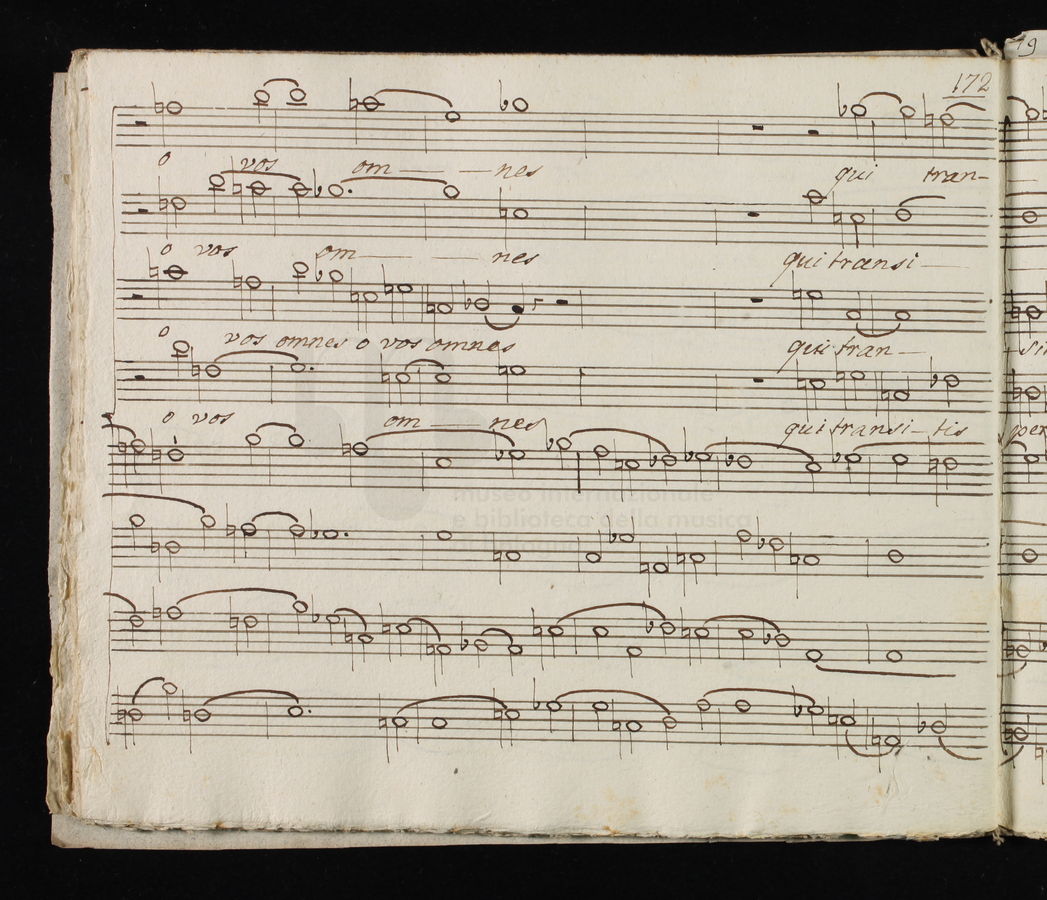 172
o vos om — — nes qui tran-
o vos om — — nes qui transi —
o vos omnes o vos omnes qui tran —
o vos om — nes qui transi-tis
museo internazionale
e biblioteca della musica
di bologna
19
per